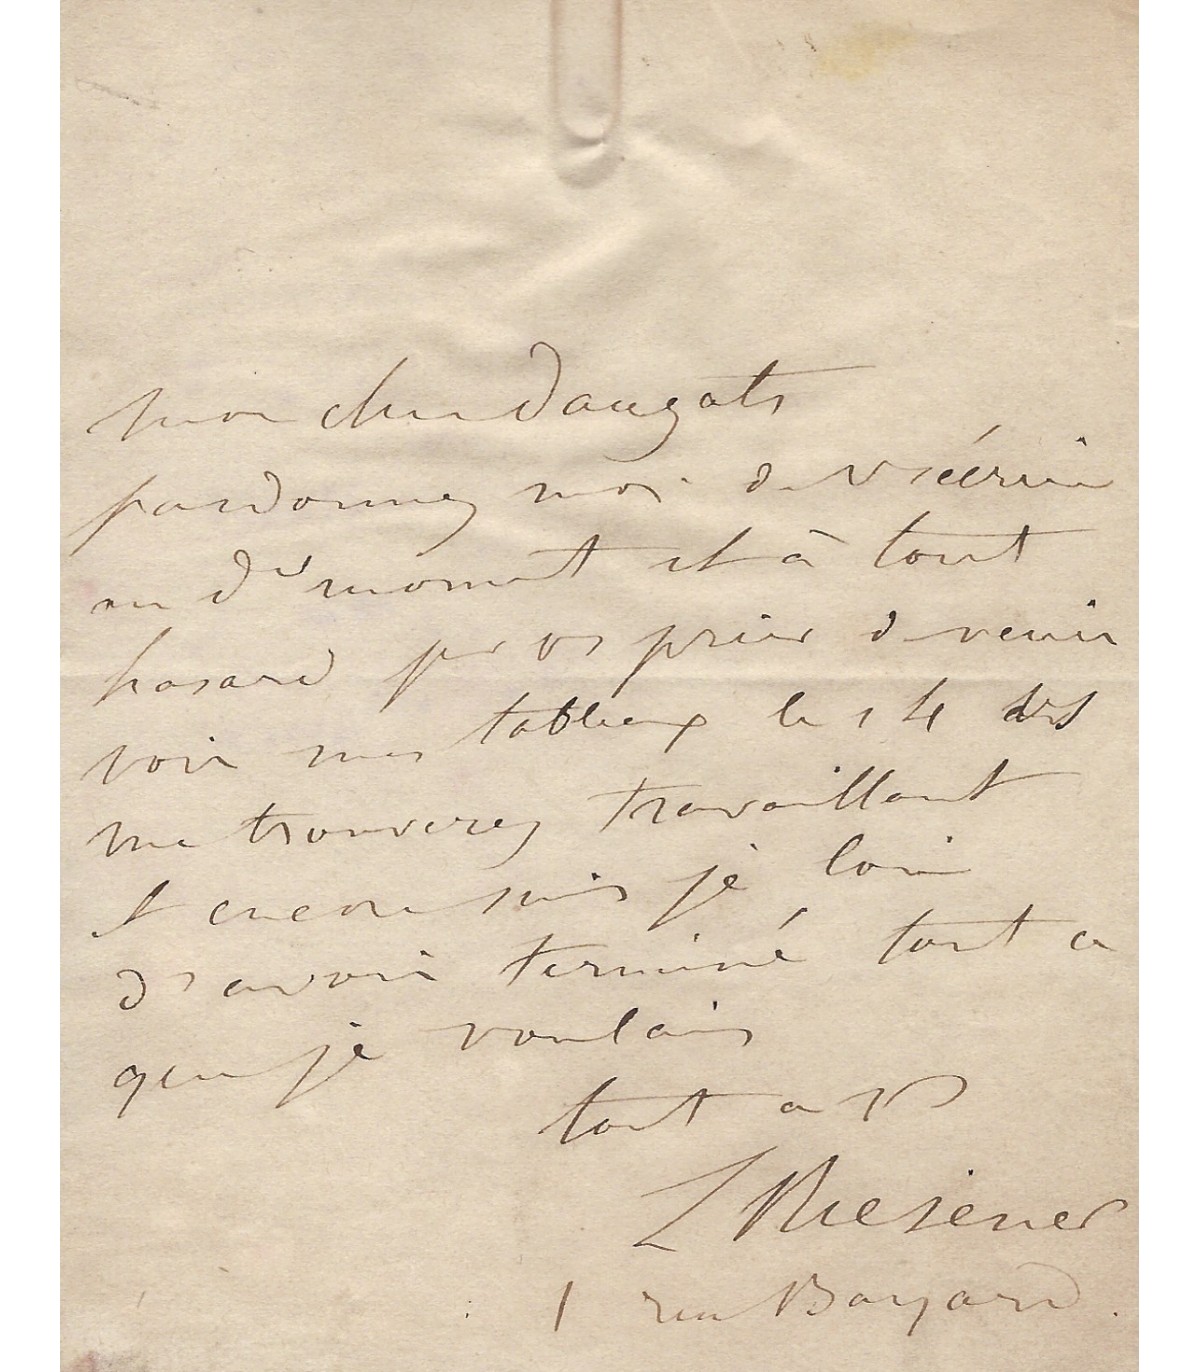 mon cher Dauzats
pardonnez moi de vs écrire
au dr moment et à tout
hasard pr vs prier de venir
voir mes tableaux le 14 vs
me trouverez travaillant
et encore suis je loin
d'avoir terminé tout ce
que je voulais
tout a vs
L Riesener
1 rue Bayard.